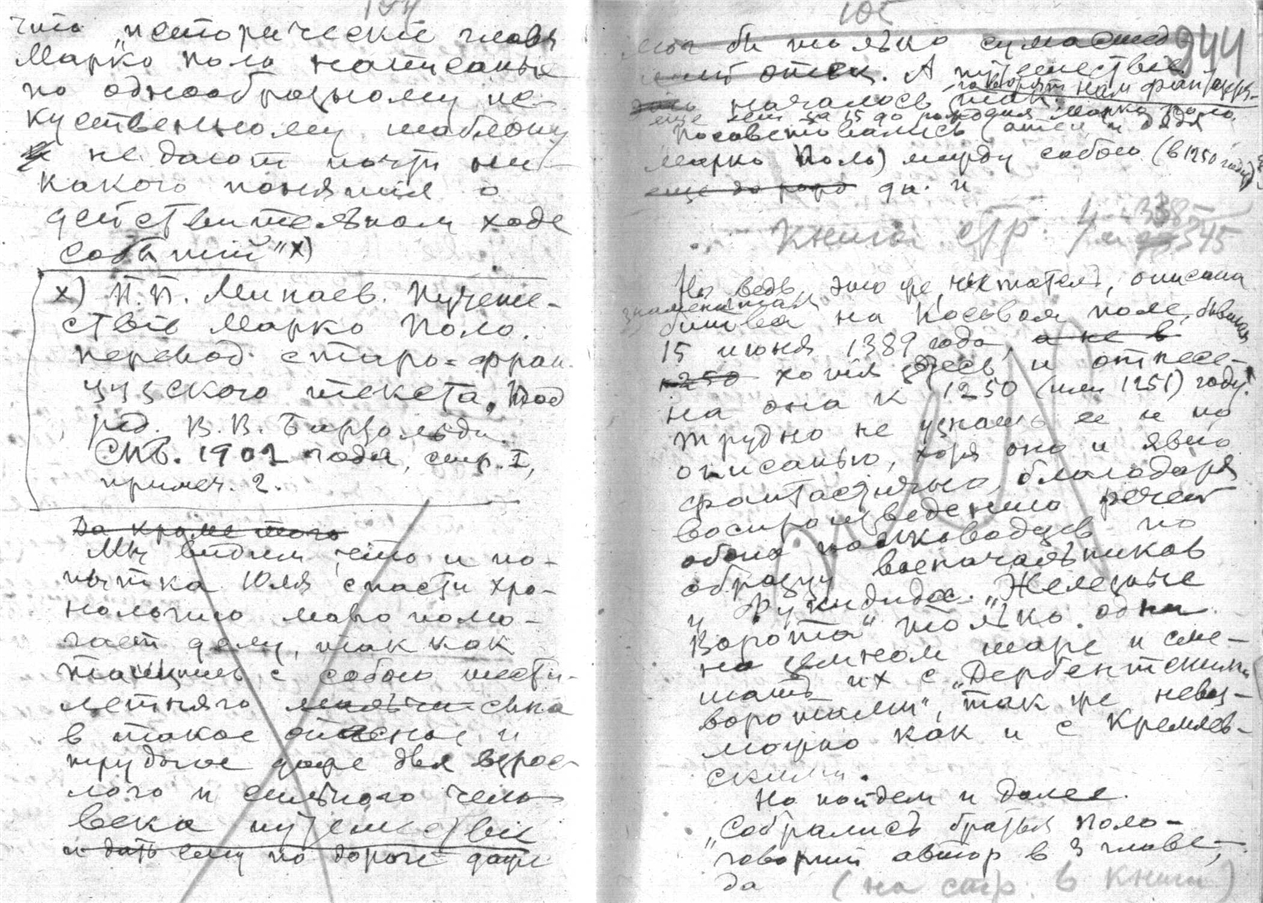 104
что "исторические главы
Марко Поло написаны
по однообразному ис-
кусственному шаблону
и не дают почти ни-
какого понятия о
действительном ходе
событий" х)
х) П.П. Минаев. Путеше-
ствие Марко Поло.
перевод старо-фран
цузского текста, под
ред. В.В. Бартольда.
СПБ. 1902 года, стр. I,
примеч. 2.
Да кроме того
Мы видим, что и по-
пытка Юля спасти хро-
нологию мало помо-
гает делу, так как
тащить с собою шести-
летнего сына
в такое опасное и
трудное даже для взрос-
лого и сильного чело-
века путешествие
и дать ему по дороге даже
105
мог бы только сумасшед
ший отец. А путешествие 944
говорят нам
началось так:
еще лет за 15 до рождения Марко Поло.
Посоветовались (отец и дядя
Марко Поло) между собою (в 1250 году)
еще до да. и
Книги стр. 338-
345
Но ведь это же, читатель, описана
знаменитая
битва на Косовом поле, бывшая
15 июня 1389 года, а не в
1250 хотя здесь и отнесе-
на она к 1250 (или 1251) году!
Трудно не узнать ее и по
описанью, хотя оно и явно
фантастично благодаря
воспроизведению речей
обоих полководцев по
образцу военачальников
у Фукидида. "Железные
Ворота" только одни
на земном шаре и сме-
шать их с "Дербентскими
воротами", так же невоз-
можно как и с Кремлев-
скими.
Но пойдем и далее.
"Собрались братья Поло-
говорит автор в 3 главе,-
да (на стр. в книги)